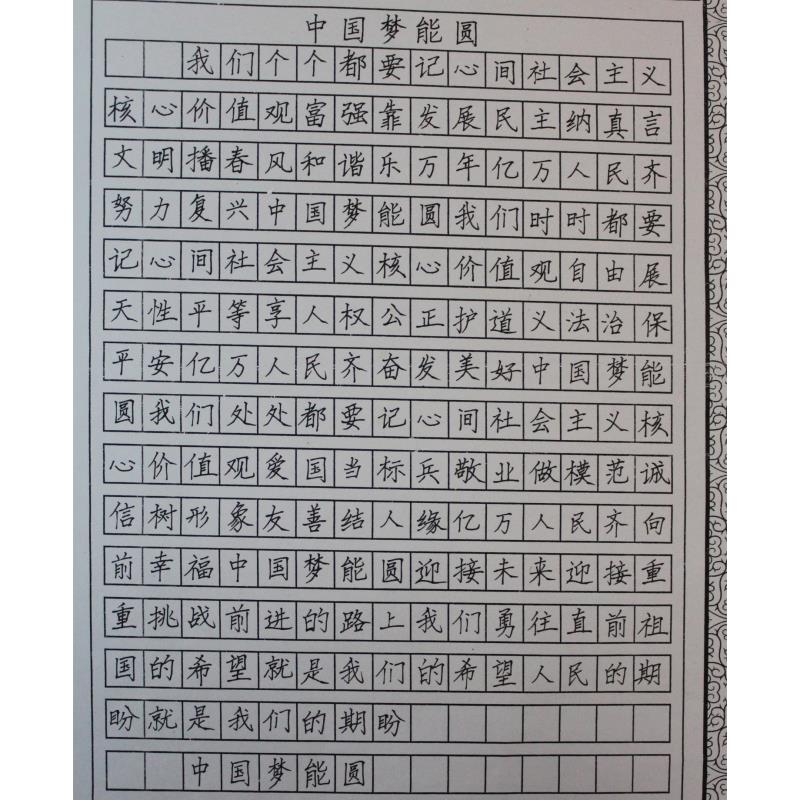 中国梦能圆
我们个个都要记心间社会主义
核心价值观富强靠发展民主纳真言
文明播春风和谐乐万年亿万人民齐
努力复兴中国梦能圆我们时时都要
记心间社会主义核心价值观自由展
天性平等享人权公正护道义法治保
平安亿万人民齐奋发美好中国梦能
圆我们处处都要记心间社会主义核
心价值观爱国当标兵敬业做模范诚
信树形象友善结人缘亿万人民齐向
前幸福中国梦能圆迎接未来迎接重
重挑战前进的路上我们勇往直前祖
国的希望就是我们的希望人民的期
盼就是我们的期盼
中国梦能圆